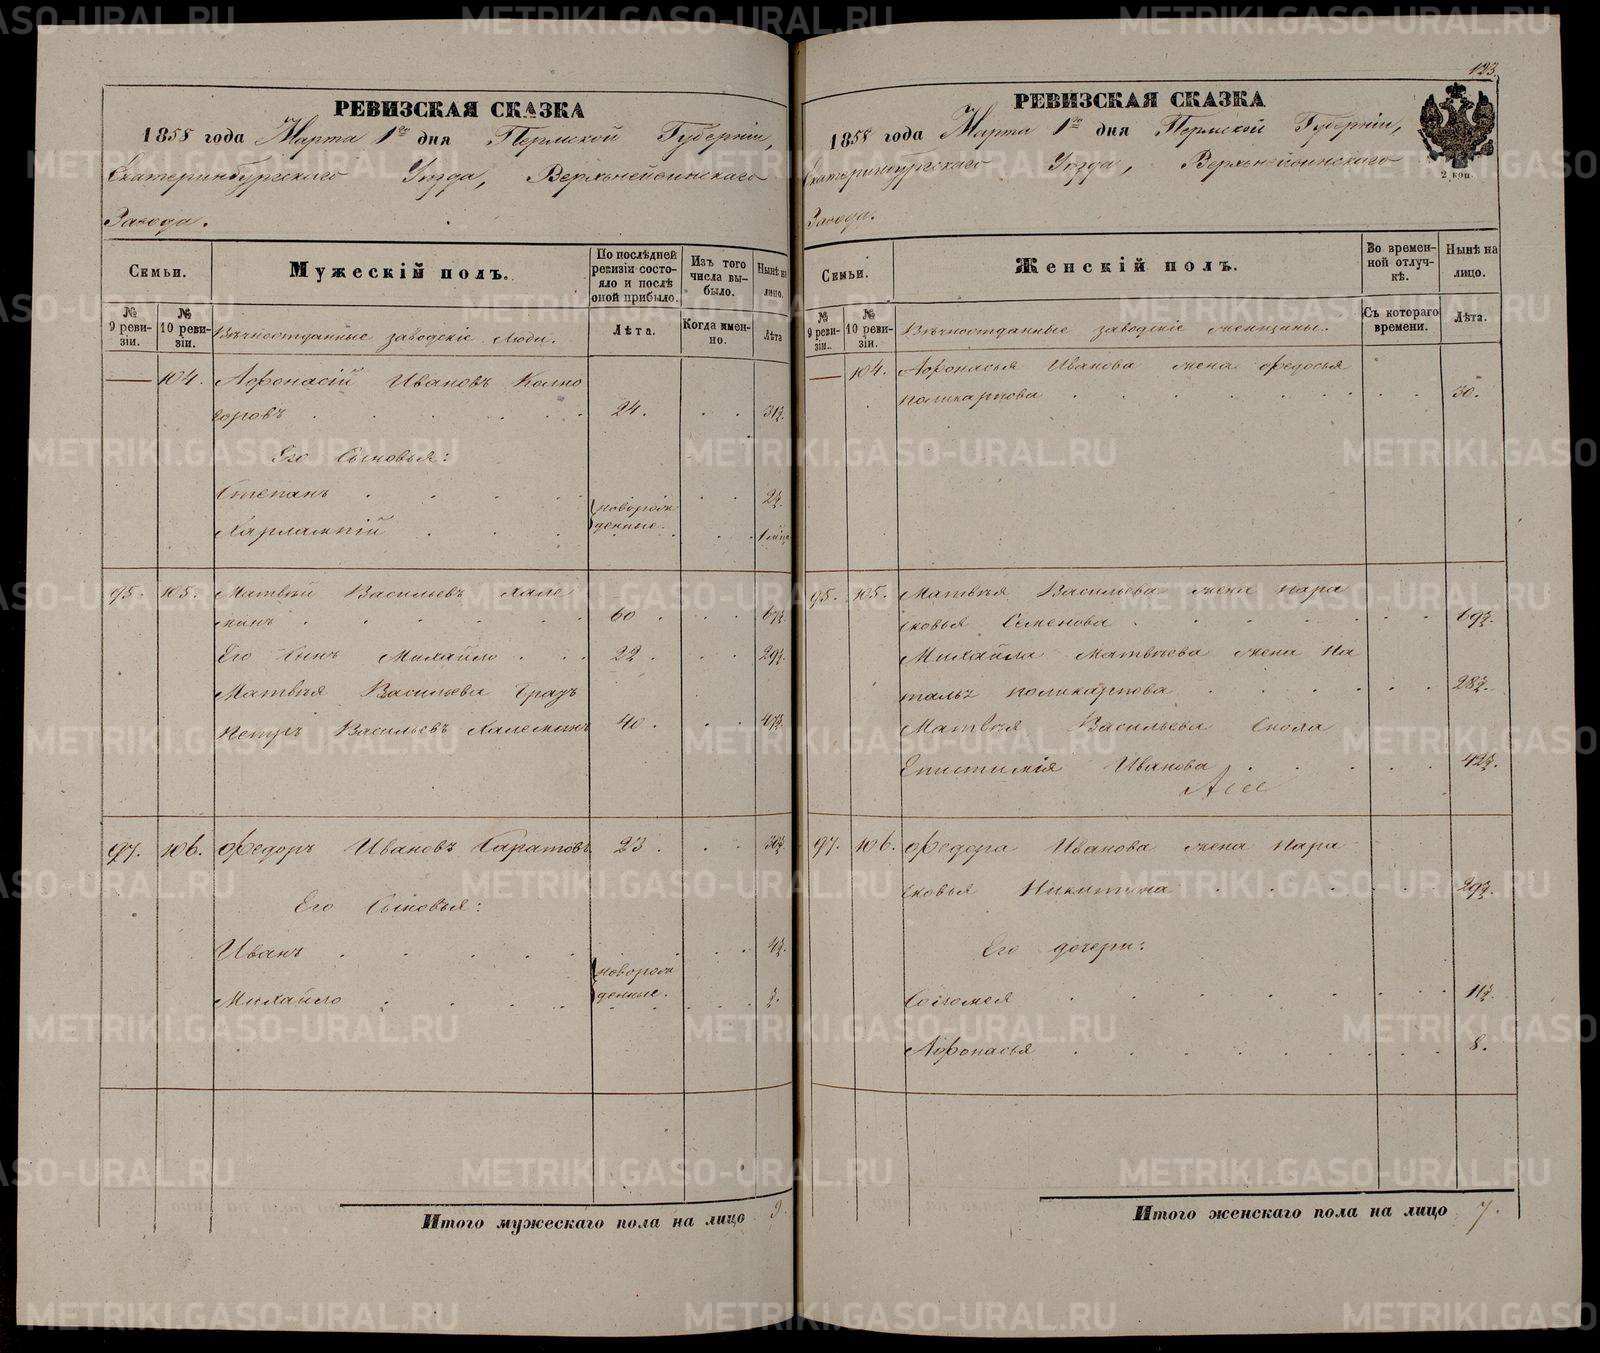 РЕВИЗСКАЯ СКАЗКА
1858 года Марта 1го дня Пермской Губерніи,
Екатеринбургскаго Уезда, Верхънейсинскаго
Завода.
Семьи.
Мужескій полъ.
По последней ревизіи состояло и после оной прибыло.
Изъ того числа выбыло.
Ныне на лицо.
№ 9 ревизіи.
№ 10 ревизіи.
Вечноотданные заводскіе люди.
Лета.
Когда именно.
Лета
104. Афонасій Ивановъ Колмо
горовъ 24. 31½.
Его Сыновья:
Степанъ 2½.
новорожденные.
Харлампій 1 мца
95. 105. Матвей Васильевъ Хале
минъ 60 67½.
Его Сынъ Михайло 22 29½.
Матвея Васильева братъ
Петръ Васильевъ Халеминъ 40 47½.
97. 106. Федоръ Ивановъ Саратовъ 23 30½.
Его Сыновья:
Иванъ 4½.
новорожденные.
Михайло ½.
Итого мужескаго пола на лицо 9.
123.
РЕВИЗСКАЯ СКАЗКА
1858 года Марта 1го дня Пермской Губерніи,
Екатеринбургскаго Уезда, Верхънейсинскаго
Завода.
2 коп.
Семьи.
Женскій полъ.
Во временной отлучкѣ.
Ныне на лицо.
№ 9 ревизіи.
№ 10 ревизіи.
Вечноотданные заводскіе женщины.
Съ котораго времени.
Лета.
104. Афонасья Иванова жена Федосья
поликарпова 30.
95. 105. Матвея Васильева жена пара
сковья Семенова 69½.
Михайла Матвеева жена На
талья поликарпова 28½.
Матвея Васильева Сноха
Епистимія Иванова 42½.
97. 106. Федора Иванова жена пара
сковья Никитина 29½.
Его дочери:
11½.
Афонасья 8.
Итого женскаго пола на лицо 7.
METRIKI.GASO-URAL.RU